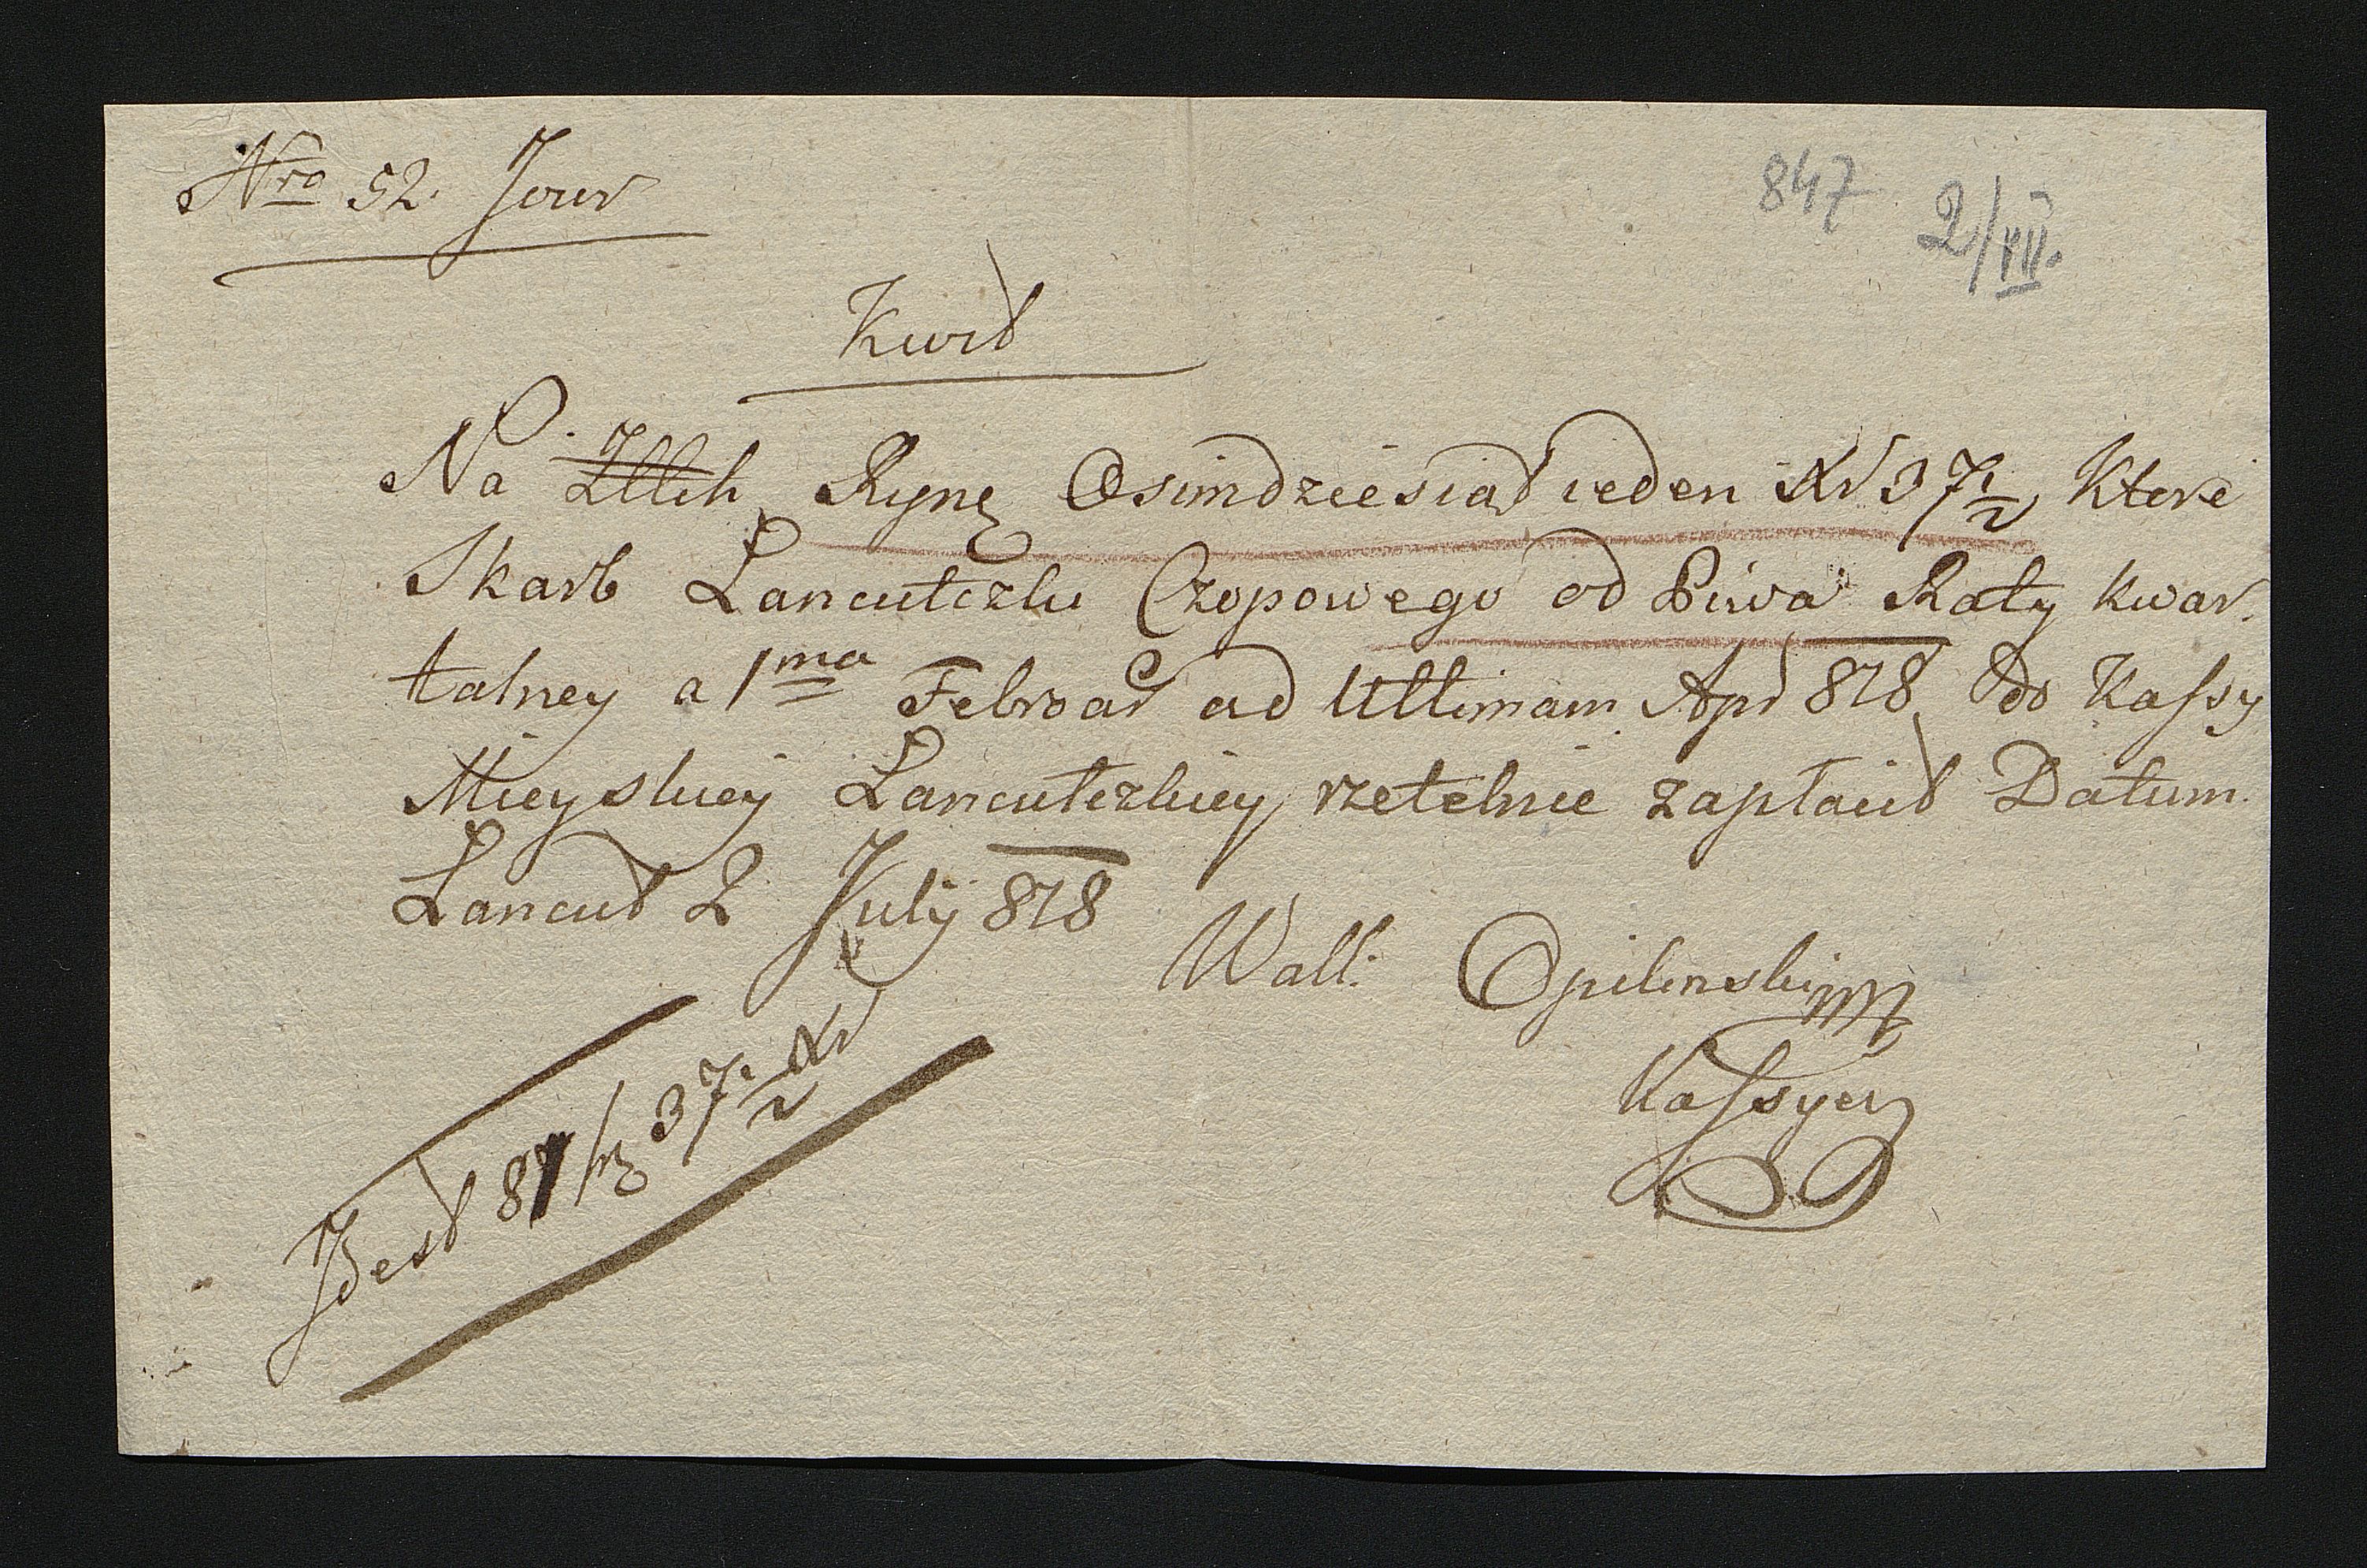 Nro 52. Jour
847 2/VII.
Kwit
Na Zllch Ryng Osimdziesiąt ieden Xr 37 1/2 Które
Skarb Lancutczki Czopowego od Piwa Raty kwar.
talney a 1ma Februar ad Ultimam Apr 818 do Kassy
Mieyskiey Lancutczkiey rzetelnie zapłacił Datum
Lancut 2 July 818
Wall: Opilinski mp
Kassyer
Jest 81 frg 37 1/2 Xr